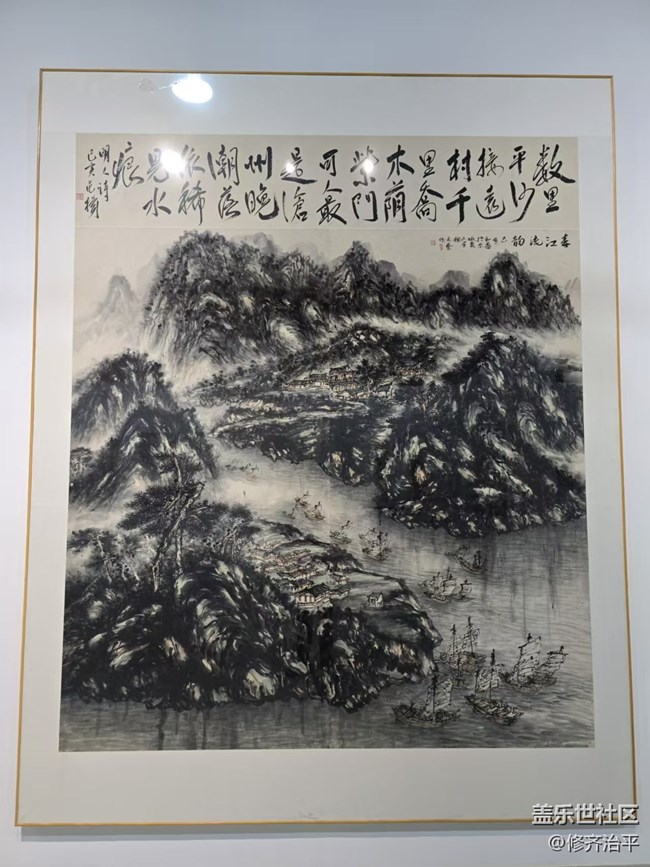 數里
平沙
接遠
村千
里喬
木蔭
柴門
可人最
是滄
州晚
潮落
依稀
見水
痕
明人詩
己亥
春江流韵
盖乐世社区
@修齐治平